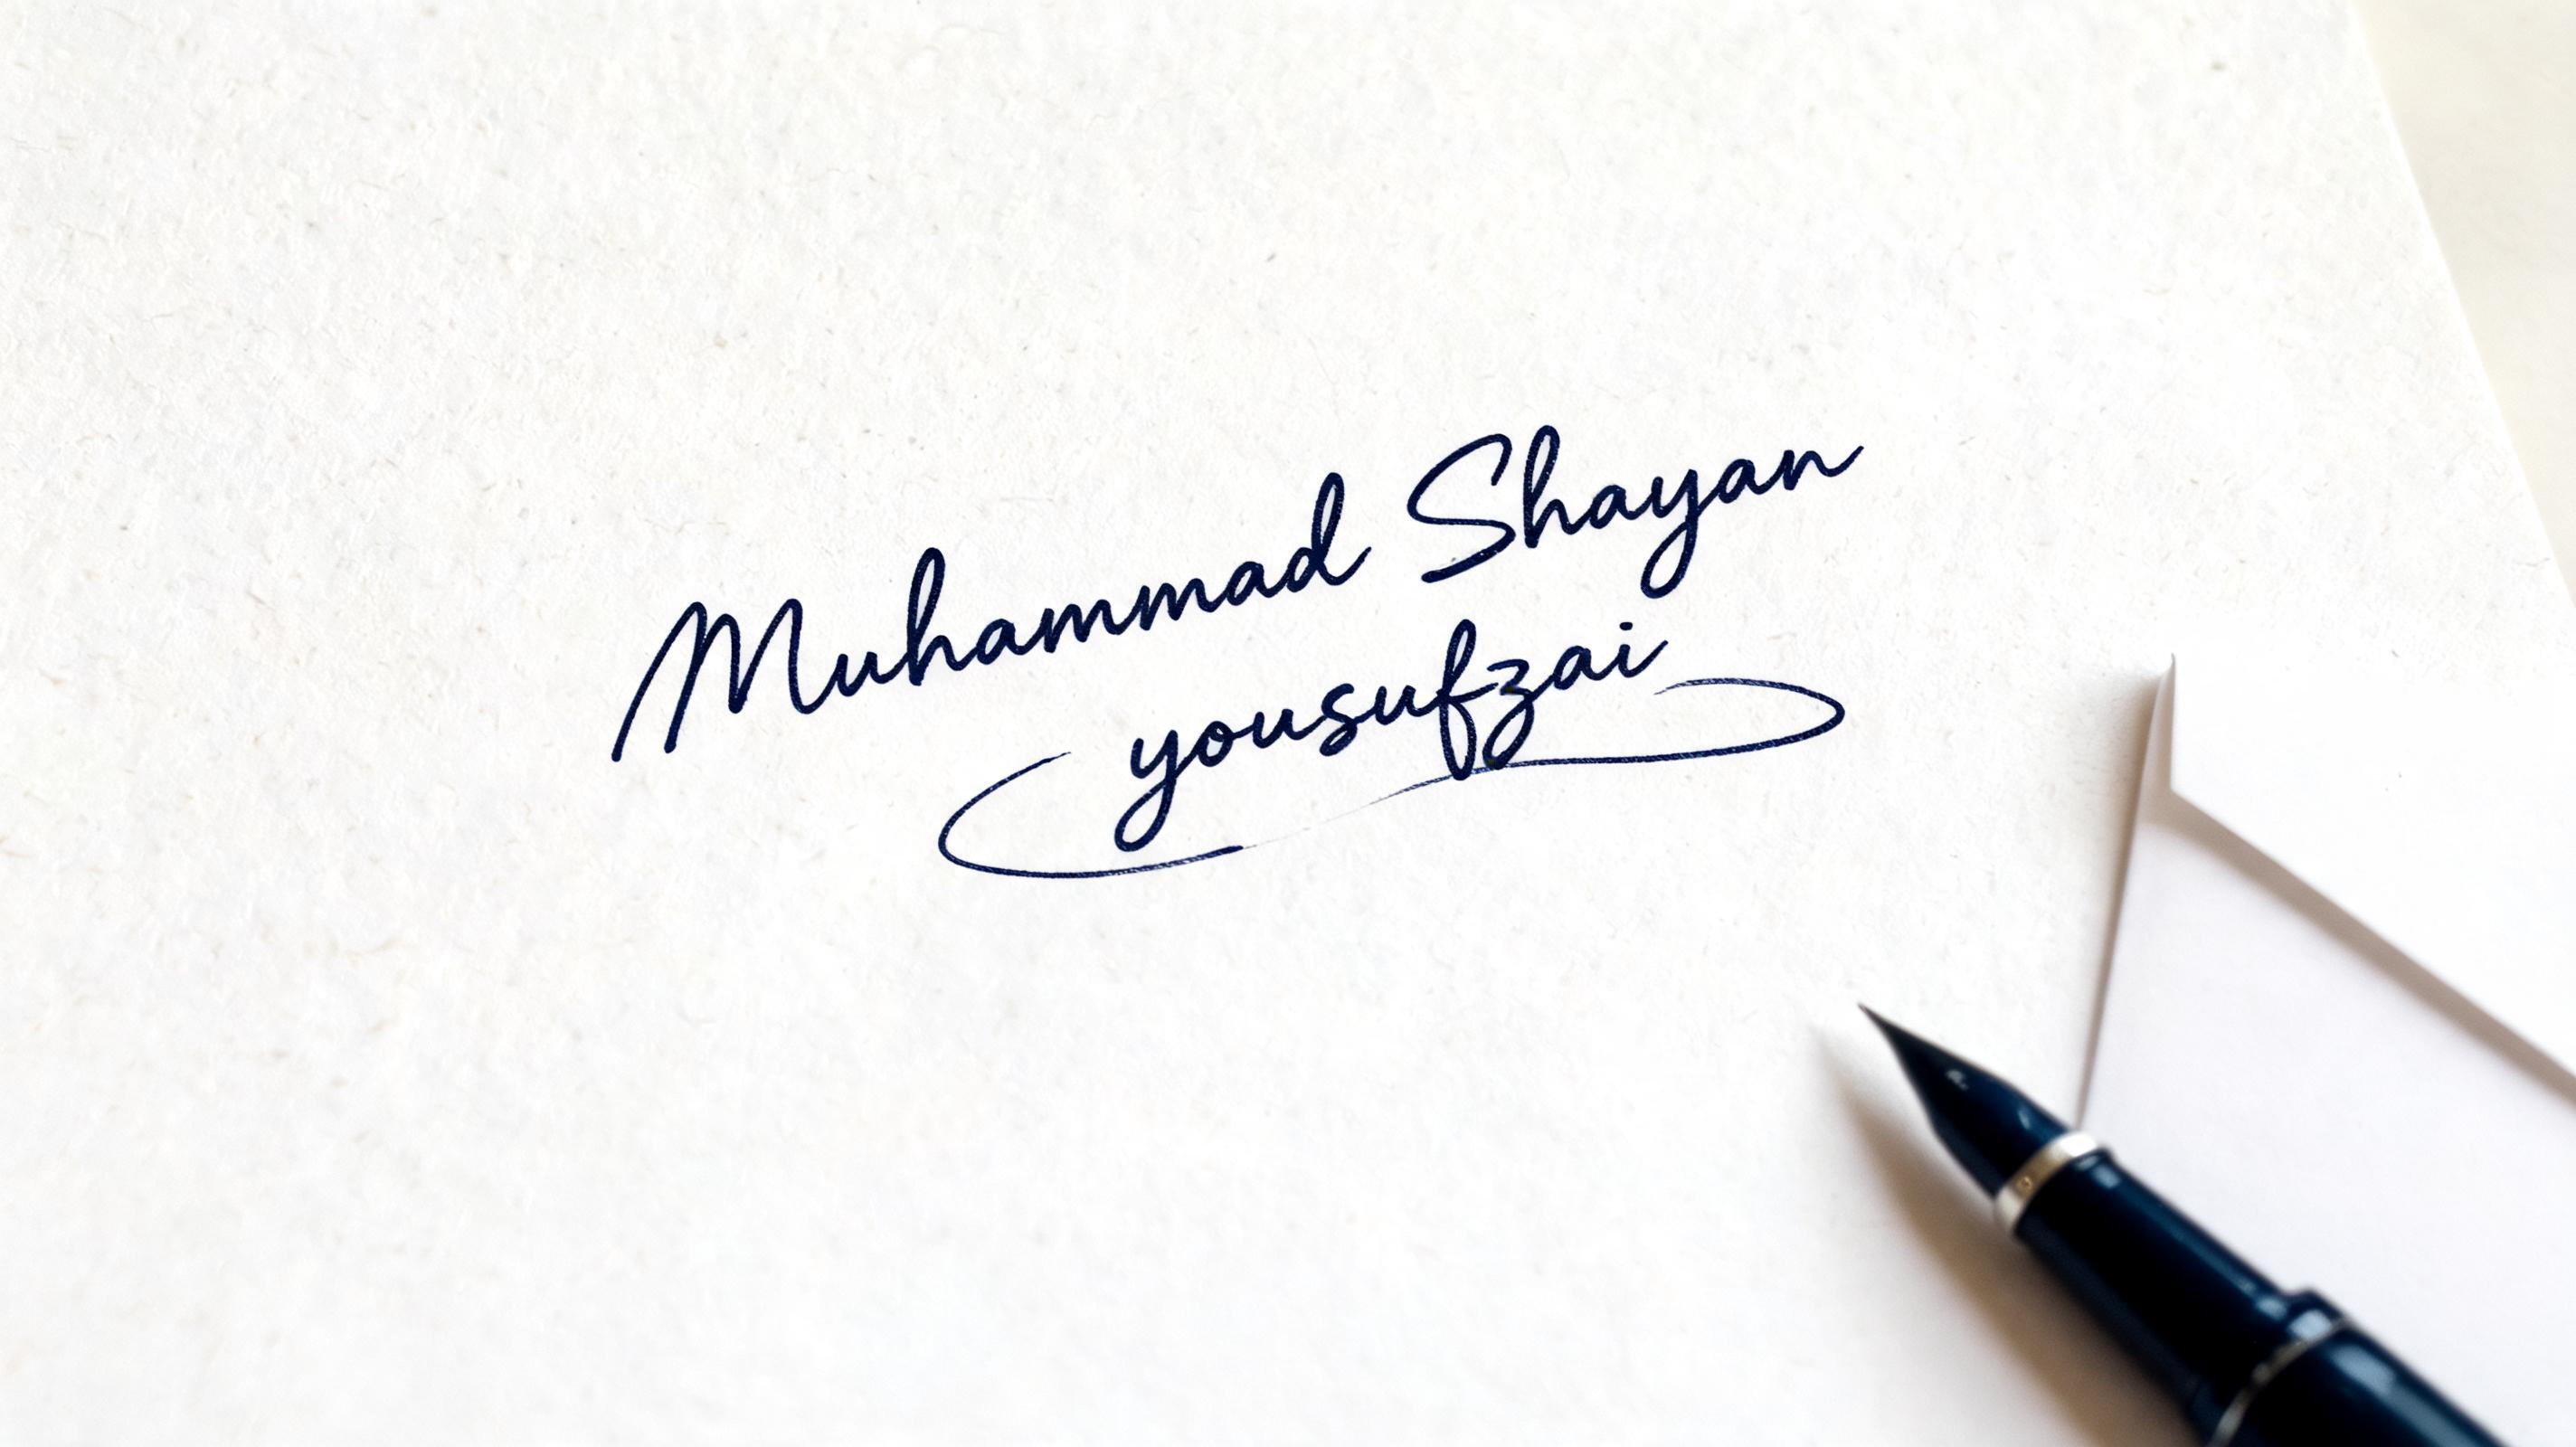 Muhammad Shayan
yousufzai